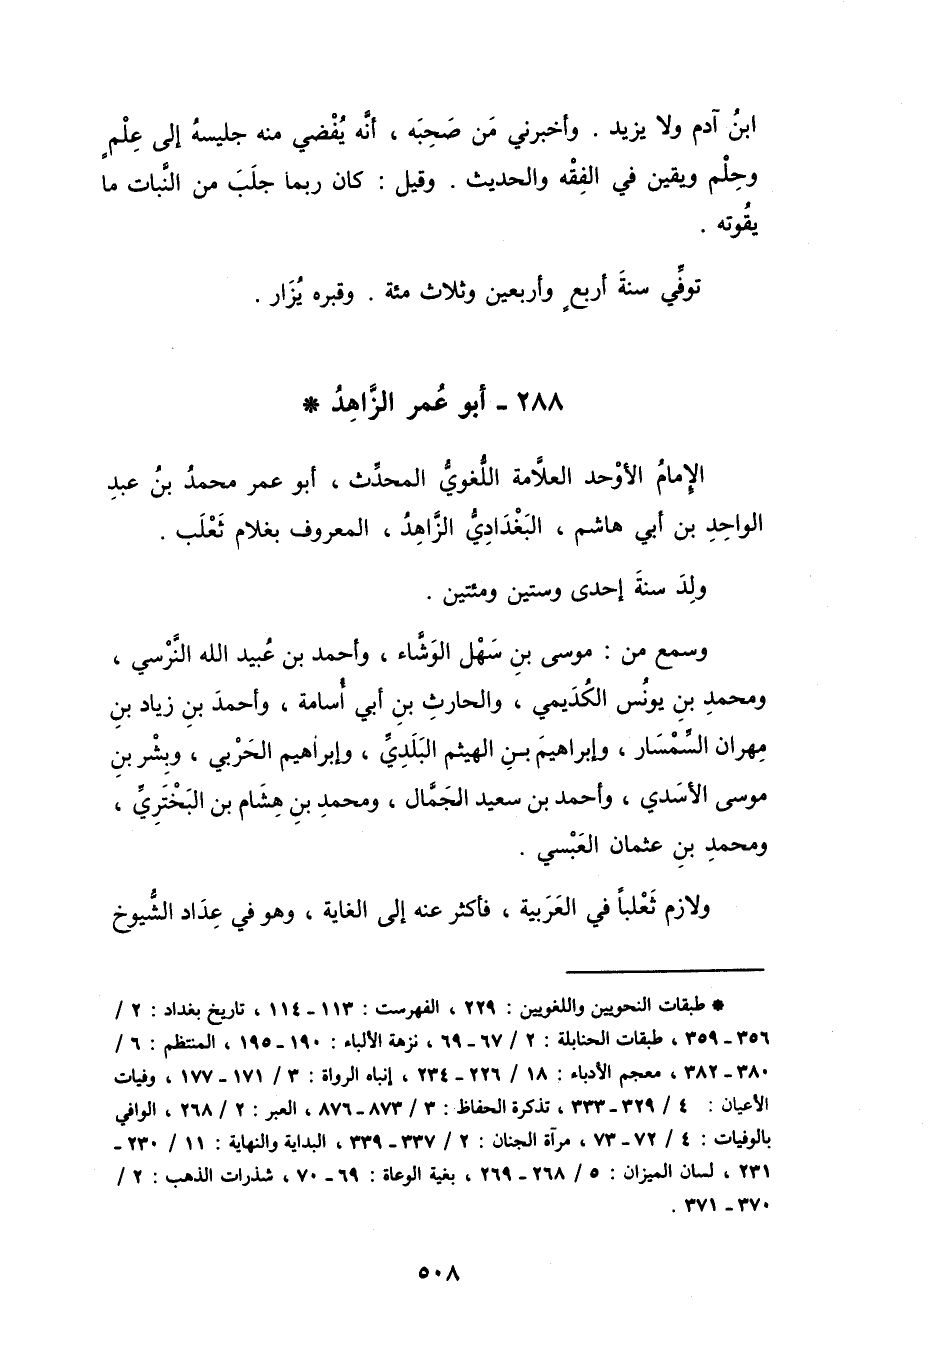 ابنُ آدم ولا يزيد . وأخبرني مَن صَحِبَه ، أنَّه يُفْضي منه جليسهُ إلى عِلْمٍ
وحِلْم ويقين في الفِقْه والحديث . وقيل : كان ربما جلَبَ من النَّبات ما
يقُوته .
توفِّي سنةَ أربعٍ وأربعين وثلاث مئة . وقبره يُزَار .
٢٨٨ - أبو عُمر الزَّاهِدُ *
الإمامُ الأوْحد العلاَّمة اللُّغويُّ المحدِّث ، أبو عمر محمدُ بنُ عبدِ
الواحِدِ بن أبي هاشم ، البَغْدَادِيُّ الزَّاهِدُ ، المعروف بغلام ثَعْلَب .
ولِدَ سنةَ إحدى وستين ومئتين .
وسمع من : موسى بنِ سَهْل الوَشَّاء ، وأحمد بن عُبيد الله النَّرْسي ،
ومحمدِ بنِ يونُس الكُدَيمي ، والحارثِ بنِ أبي أُسامة ، وأحمدَ بنِ زياد بنِ
مِهران السِّمْسَار ، وإبراهيمَ بنِ الهيثم البَلَدِيِّ ، وإبراهيم الحَرْبي ، وبِشْر بنِ
موسى الأسَدي ، وأحمد بن سعيد الجَمَّال ، ومحمدِ بنِ هِشَام بن البَخْتَرِيِّ ،
ومحمدِ بنِ عثمان العَبْسي .
ولازم ثَعْلباً في العَرَبية ، فأكثر عنه إلى الغاية ، وهو في عِدَاد الشُّيوخ
* طبقات النحويين واللغويين : ٢٢٩ ، الفهرست : ١١٣ - ١١٤ ، تاريخ بغداد : ٢ /
٣٥٦ - ٣٥٩ ، طبقات الحنابلة : ٢ / ٦٧ - ٦٩ ، نزهة الألباء : ١٩٠ - ١٩٥ ، المنتظم : ٦ /
٣٨٠ - ٣٨٢ ، معجم الأدباء : ١٨ / ٢٢٦ - ٢٣٤ ، إنباه الرواة : ٣ / ١٧١ - ١٧٧ ، وفيات
الأعيان : ٤ / ٣٢٩ - ٣٣٣ ، تذكرة الحفاظ : ٣ / ٨٧٣ - ٨٧٦ ، العبر : ٢ / ٢٦٨ ، الوافي
بالوفيات : ٤ / ٧٢ - ٧٣ ، مرآة الجنان : ٢ / ٣٣٧ - ٣٣٩ ، البداية والنهاية : ١١ / ٢٣٠ -
٢٣١ ، لسان الميزان : ٥ / ٢٦٨ - ٢٦٩ ، بغية الوعاة : ٦٩ - ٧٠ ، شذرات الذهب : ٢ /
٣٧٠ - ٣٧١ .
٥٠٨